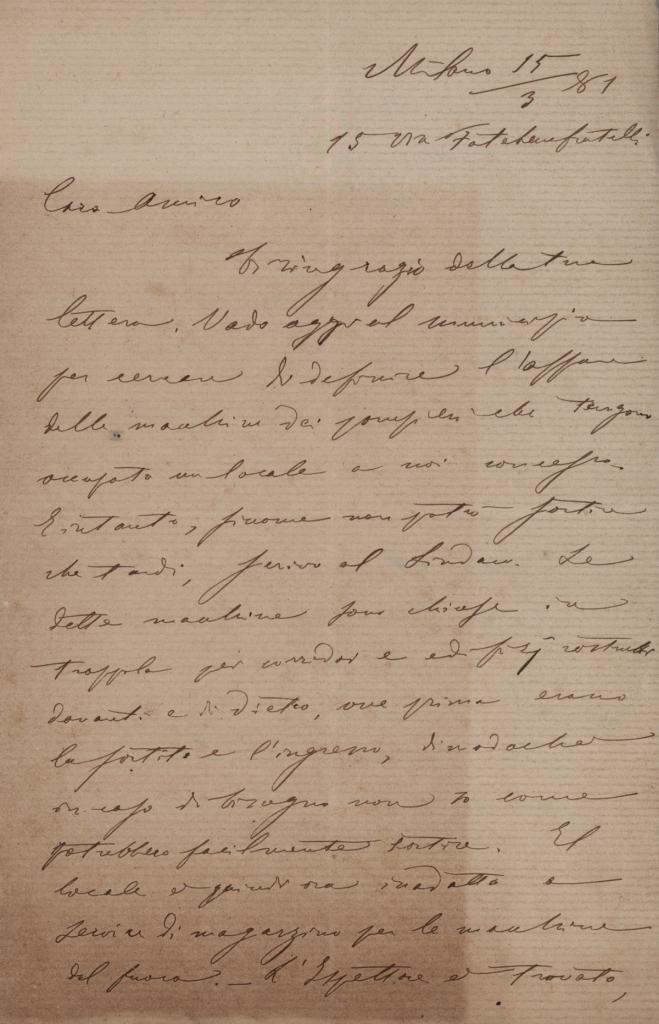 Milano 15/3 81
15 Via Fatebenefratelli
Caro Amico
Ti ringrazio della tua
lettera. Vado oggi al municipio
per cercare di definire l'affare
delle machine dei pompieri che tengono
occupato un locale a noi concesso.
E intanto, siccome non potrò sortire
che tardi, scrivo al Sindaco. Le
dette machine sono chiuse in
trappola per corridoi e edifizj costruiti
davanti e di dietro, ove prima erano
la sortita e l'ingresso, dimodoche
in caso di bisogno non so come
potrebbero facilmente sortire. El
locale è quindi ora inadatto a
servire di magazzino per le machine
del fuoco. – L'Ispettore è trovato,